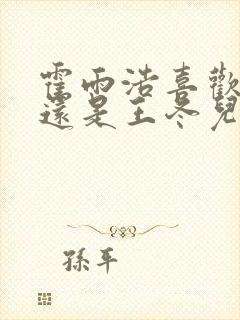 霍雨浩喜歡
還是王冬兒
孫平